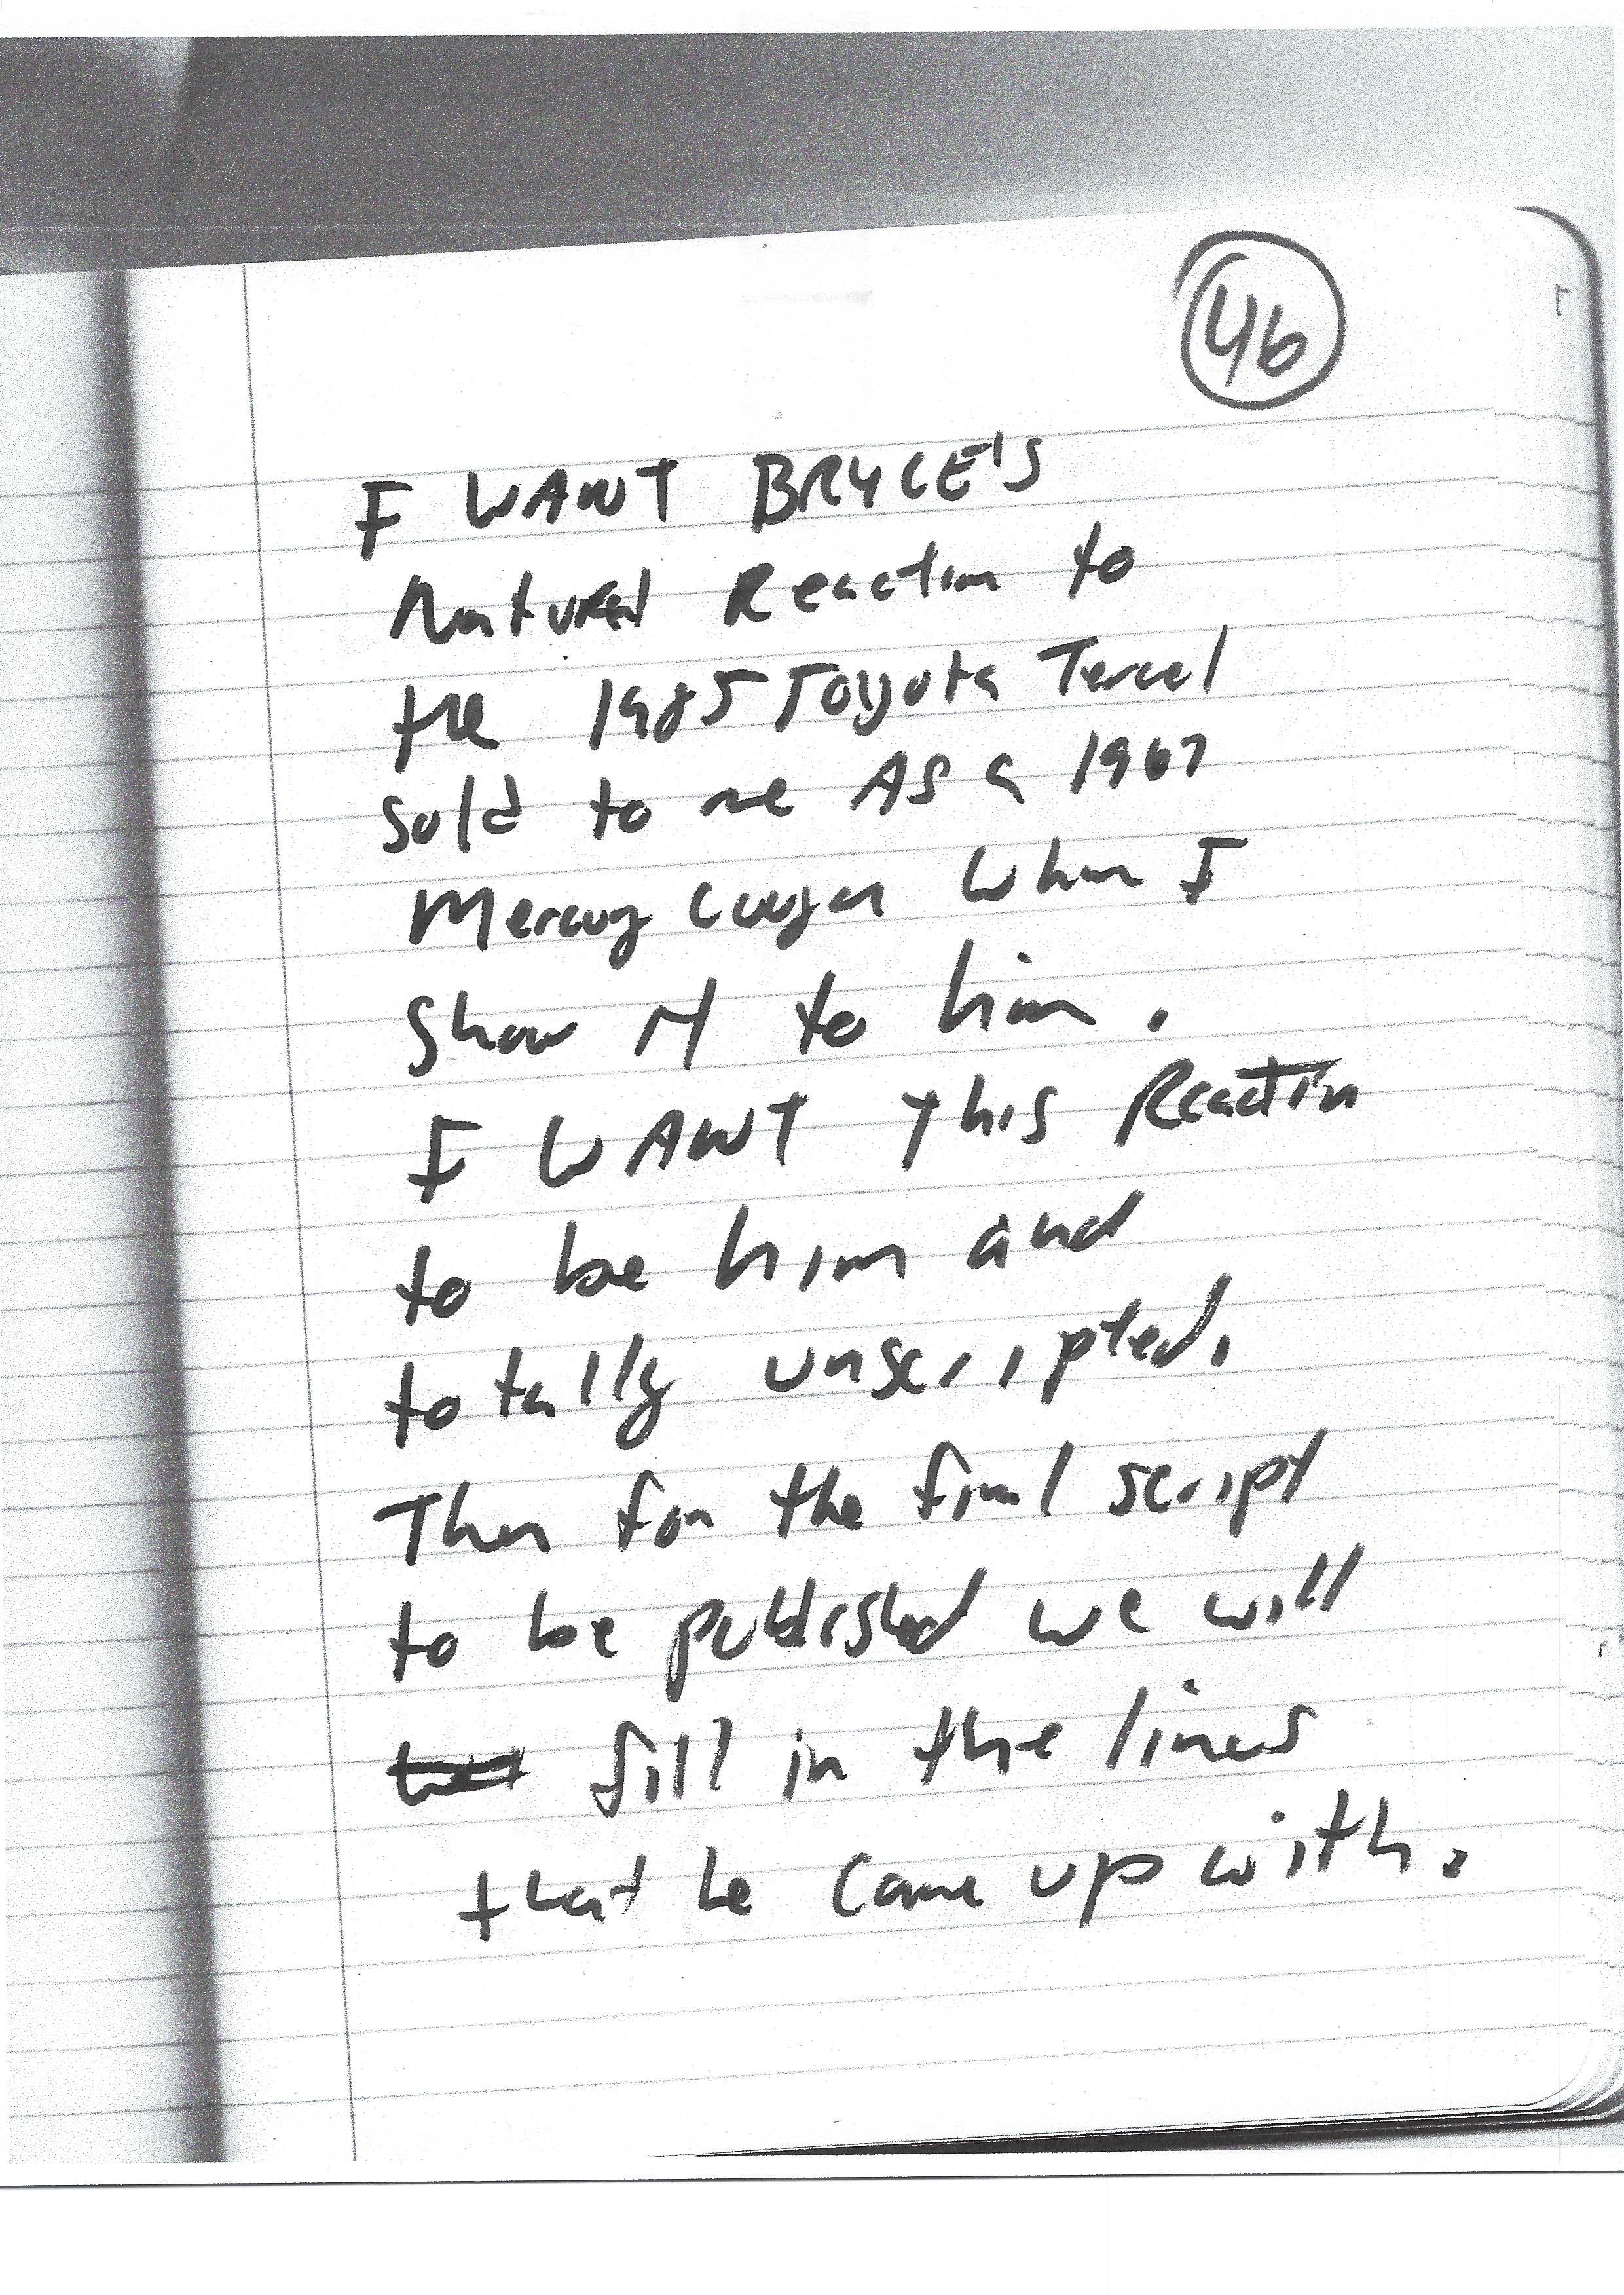 46
I WANT BRYCE'S
Natural Reaction to
the 1985 Toyota Tercel
sold to me AS a 1967
Mercury Cougar when I
Show it to him.
I WANT this Reaction
to be him and
totally unscripted.
Then for the final script
to be published we will
fill in the lines
that he came up with.